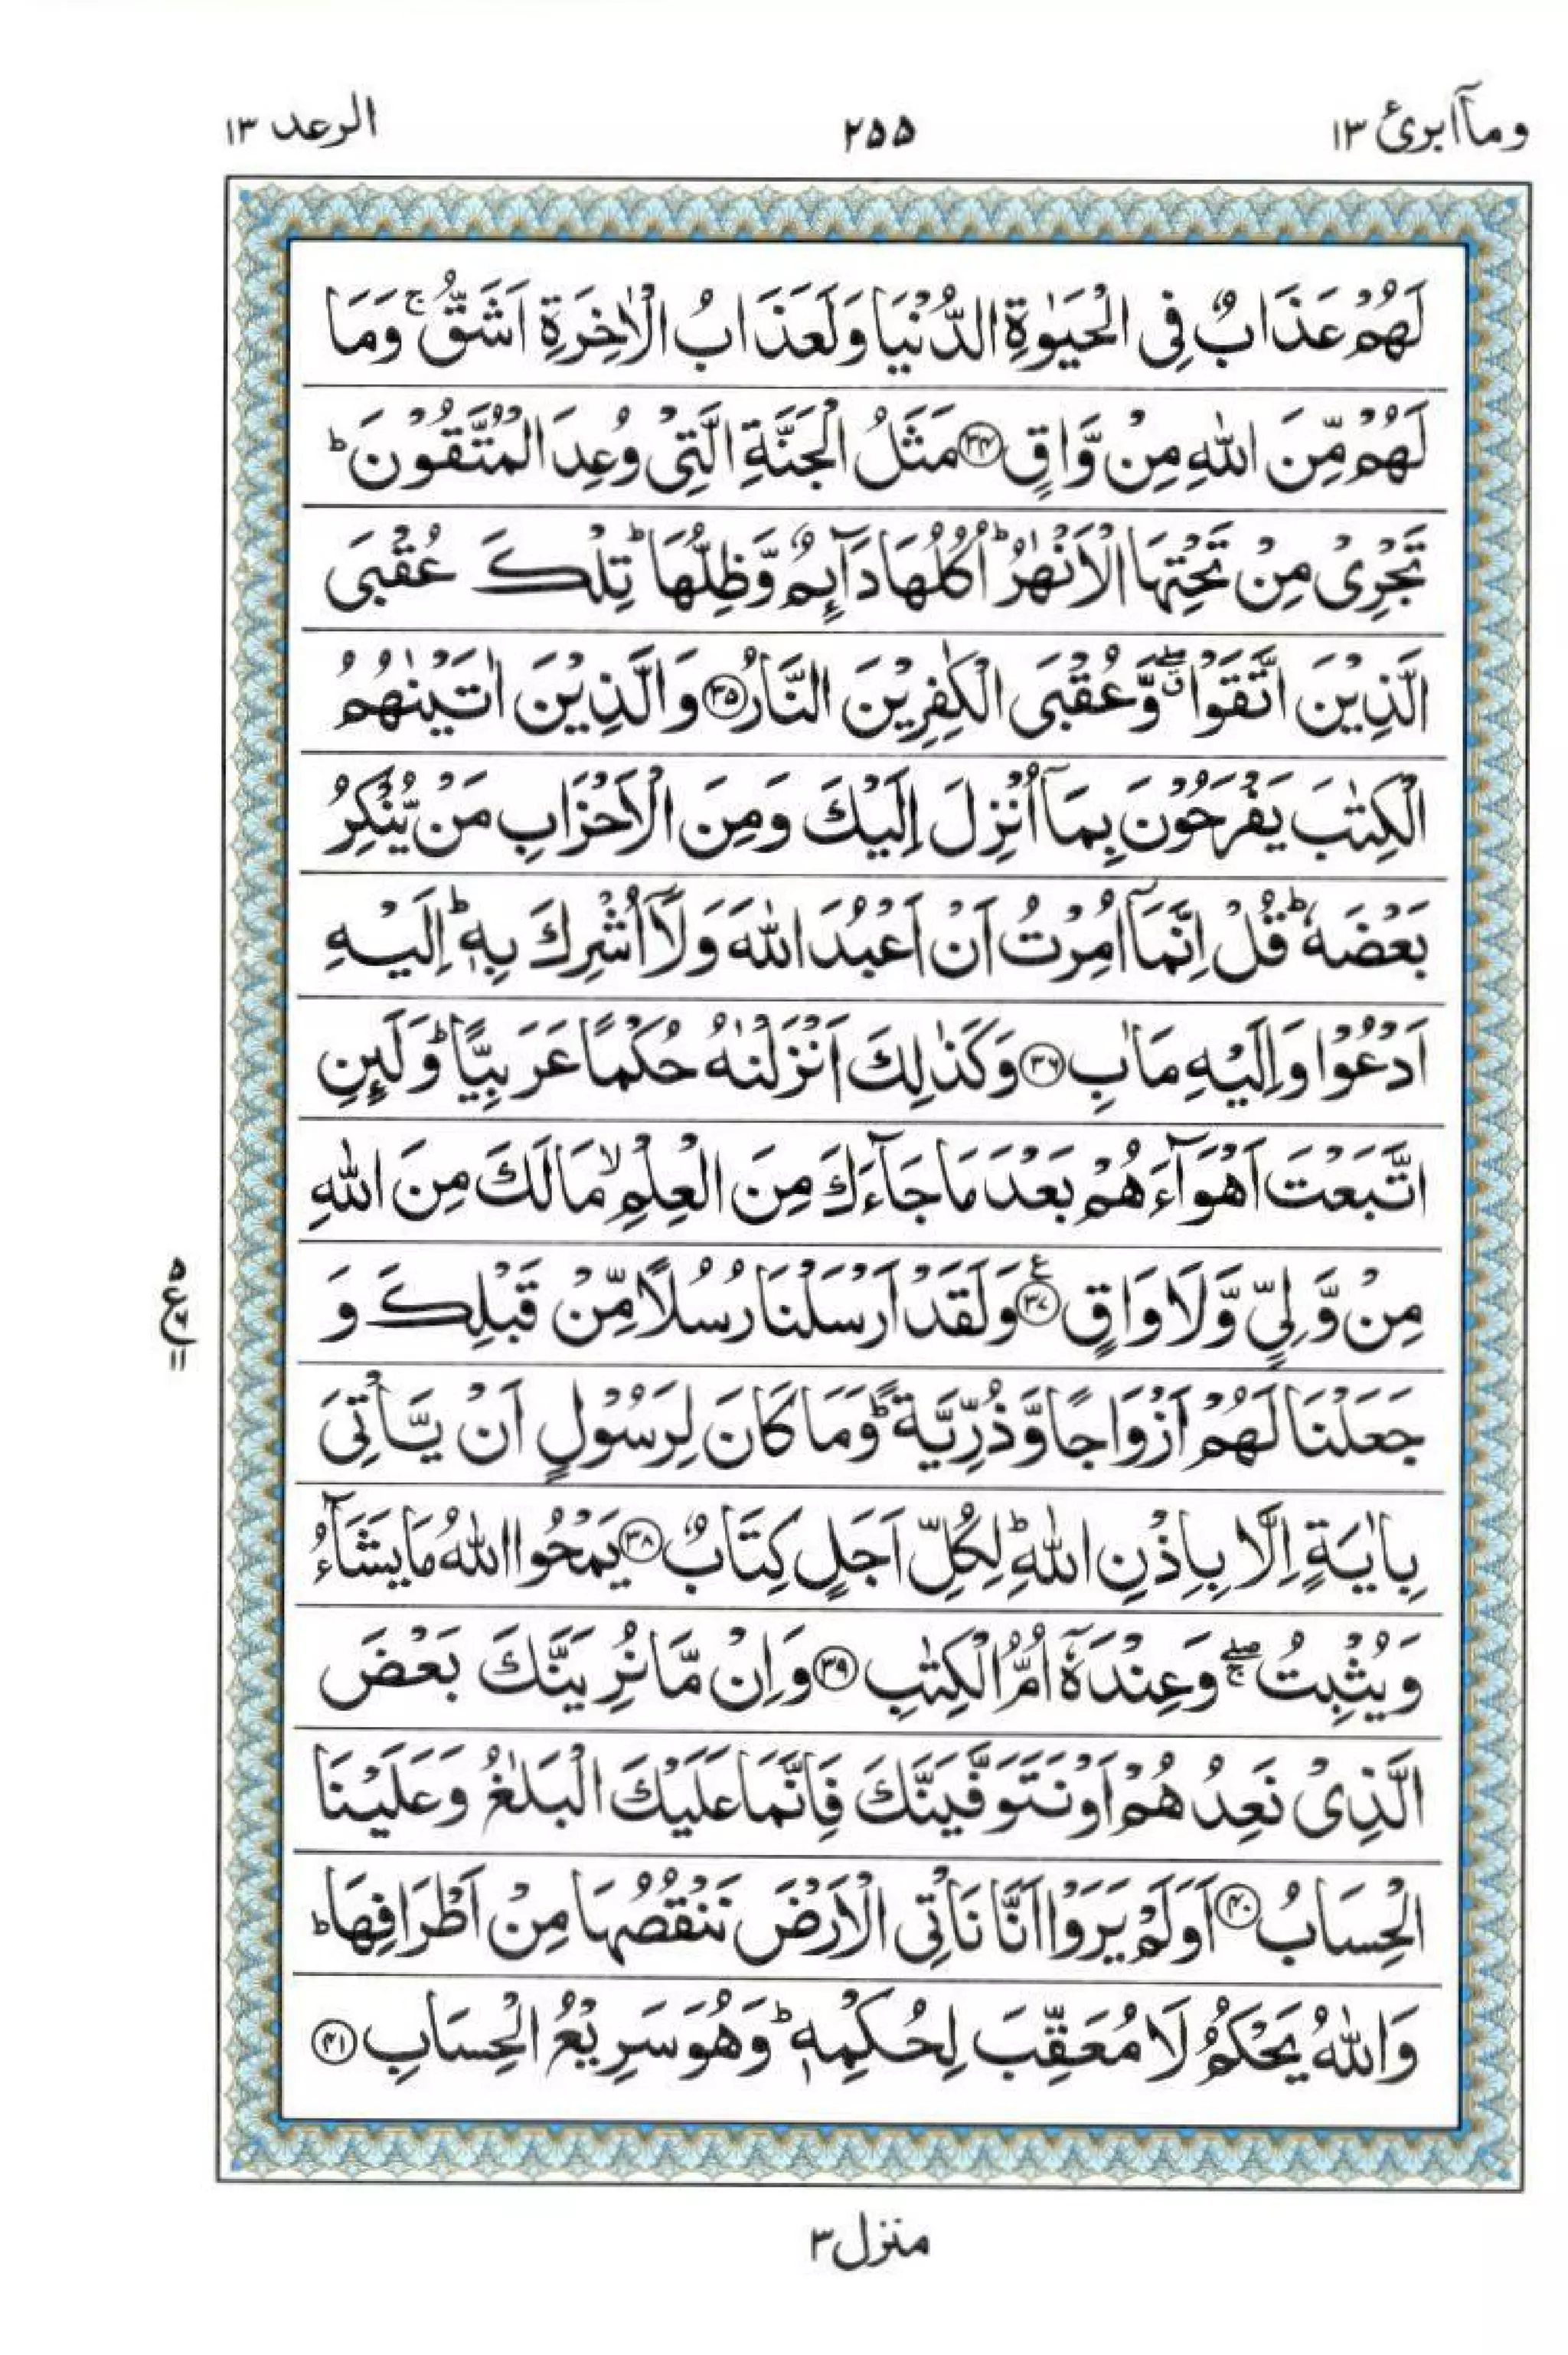 وماۤ ابرئ ١٣
٢٥٥
الرعد ١٣
لَهُمْ عَذَابٌ فِی الْحَیٰوةِ الدُّنْیَا وَلَعَذَابُ الْاٰخِرَةِ اَشَقُّ ۚ وَمَا
لَهُمْ مِّنَ اللّٰهِ مِنْ وَّاقٍ ﴿۳۴﴾ مَثَلُ الْجَنَّةِ الَّتِیْ وُعِدَ الْمُتَّقُوْنَ ؕ
تَجْرِیْ مِنْ تَحْتِهَا الْاَنْهٰرُ ؕ اُكُلُهَا دَآىِٕمٌ وَّظِلُّهَا ؕ تِلْكَ عُقْبَی
الَّذِیْنَ اتَّقَوْا ۖۗ وَّعُقْبَی الْكٰفِرِیْنَ النَّارُ ﴿۳۵﴾ وَالَّذِیْنَ اٰتَیْنٰهُمُ
الْكِتٰبَ یَفْرَحُوْنَ بِمَاۤ اُنْزِلَ اِلَیْكَ وَمِنَ الْاَحْزَابِ مَنْ یُّنْكِرُ
بَعْضَهٗ ؕ قُلْ اِنَّمَاۤ اُمِرْتُ اَنْ اَعْبُدَ اللّٰهَ وَلَاۤ اُشْرِكَ بِهٖ ؕ اِلَیْهِ
اَدْعُوْا وَاِلَیْهِ مَاٰبِ ﴿۳۶﴾ وَكَذٰلِكَ اَنْزَلْنٰهُ حُكْمًا عَرَبِیًّا ؕ وَلَىِٕنِ
اتَّبَعْتَ اَهْوَآءَهُمْ بَعْدَ مَا جَآءَكَ مِنَ الْعِلْمِ ۙ مَا لَكَ مِنَ اللّٰهِ
مِنْ وَّلِیٍّ وَّلَا وَاقٍ ﴿۳۷﴾ ع وَلَقَدْ اَرْسَلْنَا رُسُلًا مِّنْ قَبْلِكَ وَ
۵
ع
۱۱
جَعَلْنَا لَهُمْ اَزْوَاجًا وَّذُرِّیَّةً ؕ وَمَا كَانَ لِرَسُوْلٍ اَنْ یَّاْتِیَ
بِاٰیَةٍ اِلَّا بِاِذْنِ اللّٰهِ ؕ لِكُلِّ اَجَلٍ كِتَابٌ ﴿۳۸﴾ یَمْحُوا اللّٰهُ مَا یَشَآءُ
وَیُثْبِتُ ۖۚ وَعِنْدَهٗۤ اُمُّ الْكِتٰبِ ﴿۳۹﴾ وَاِنْ مَّا نُرِیَنَّكَ بَعْضَ
الَّذِیْ نَعِدُهُمْ اَوْ نَتَوَفَّیَنَّكَ فَاِنَّمَا عَلَیْكَ الْبَلٰغُ وَعَلَیْنَا
الْحِسَابُ ﴿۴۰﴾ اَوَلَمْ یَرَوْا اَنَّا نَاْتِی الْاَرْضَ نَنْقُصُهَا مِنْ اَطْرَافِهَا ؕ
وَاللّٰهُ یَحْكُمُ لَا مُعَقِّبَ لِحُكْمِهٖ ؕ وَهُوَ سَرِیْعُ الْحِسَابِ ﴿۴۱﴾
منزل ۳